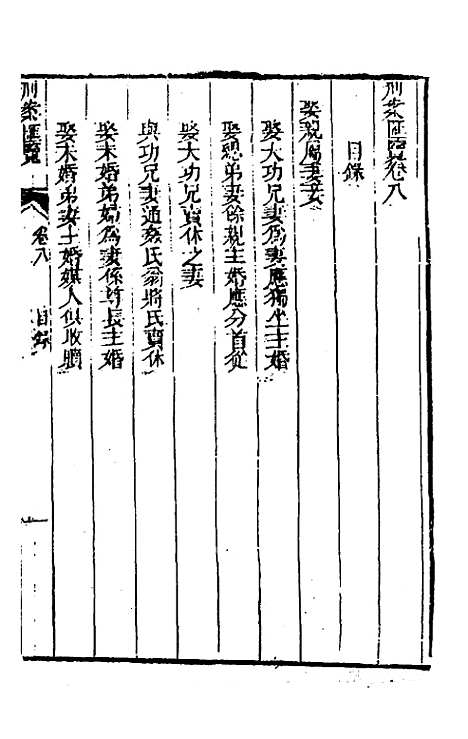 刑案匯覽卷八
目錄
娶親屬妻妾
娶大功兄妻為妻應獨坐主婚
娶緦弟妻餘親主婚應分首從
娶大功兄賣休之妻
與功兄妻通姦氏翁將氏賣休
娶未婚弟婦為妻係尊長主婚
娶未婚弟妻主婚媒人俱收贖
刑案匯覽 卷八 目錄 一